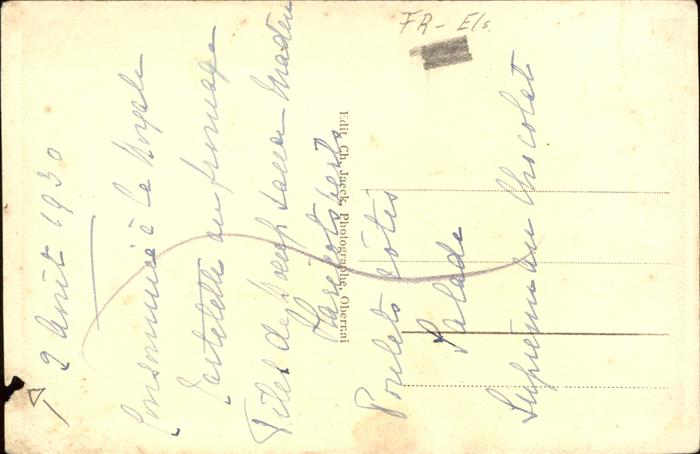 FR - Els.
2 Août 1930
Consommé à la Royale
Tartelette au fromage
Filet de Boeuf sauce Madère
Haricots verts
Poulets rôtis
Salade
Suprême au Chocolat
Edit. Ch. Jaeck, Photographe, Obernai